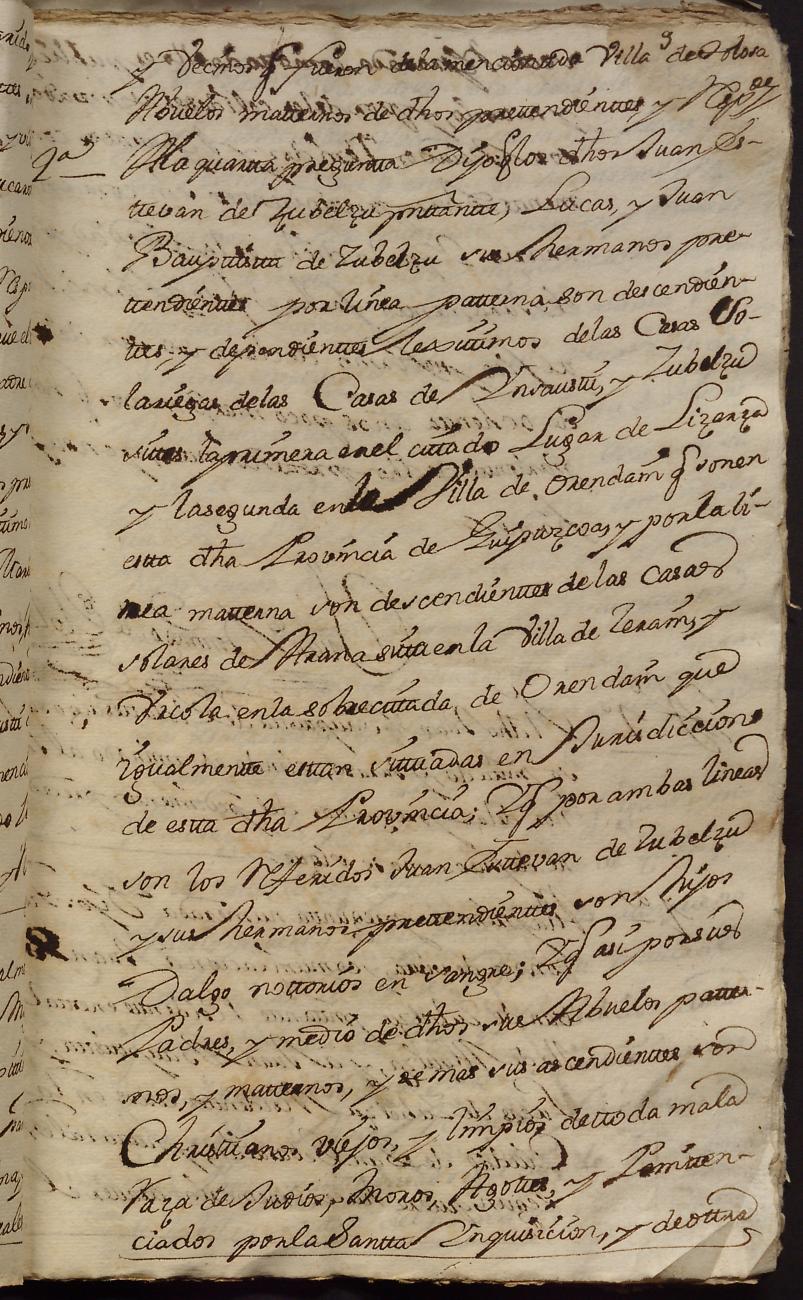 y Vecinos q fueron dela mencionada Villa de Tolosa
Abuelos matternos de dhos prettendienttes y Resp.de
4.a Ala quartta pregunta Dijo q los dhos Juan Es-
ttevan de Zubelzu Lucas, y Juan
Bauptista de Zubelzu sus Hermanos pre-
ttendienttes por linea patterna son descendien-
ttes, y dependienttes lexitimos delas Casas So-
lariegas delas Casas de Ynsausti, y Zubelzu
sittas la primera en el cittado Lugar de Lizarza
y la segunda en la Villa de Orendain q son en
estta dha Provincia de Guipuzcoa, y por la li-
nea matterna son descendienttes de las casas
solares de Arana sitta en la Villa de Zerain, y
Vrcola en la sobrecittada de Orendain que
igualmentte esttan sittuadas en Jurisdiccion
de estta dha Provincia; Y q por ambas lineas
son los Referidos Juan Esttevan de Zubelzu
y sus Hermanos prettendienttes son Hijos
Dalgo nottorios en sangre; Y q asi por sus
Padres, y medio de dhos sus Abuelos patter-
nos, y matternos, y demas sus ascendienttes son
Christtianos viejos, y limpios de ttoda mala
Raza de Judios, Moros, Agottes, y Penitten-
ciados por la Santta Ynquisicion, y de ottra